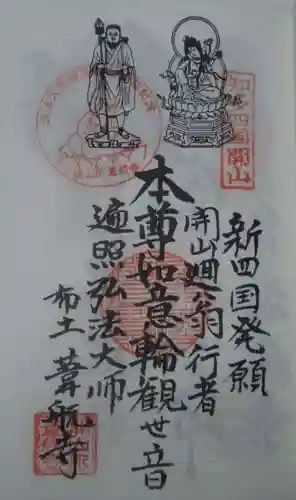 知多四国
開山
新四国発願
開山廻翁行者
本尊如意輪観世音
遍照弘法大师
布土 葦航寺